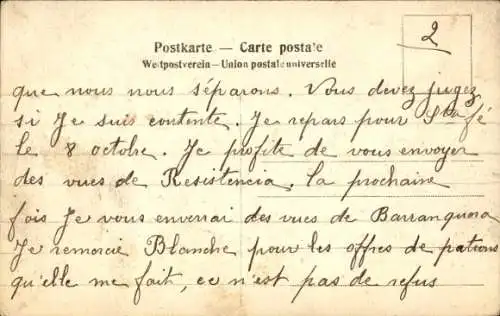 2
Postkarte — Carte postale
Weltpostverein — Union postale universelle
que nous nous séparons. Vous devez jugez
si Je suis contente. Je repars pour Sta fé
le 8 octobre. Je profite de vous envoyer
des vues de Resistencia. la prochaine
fois Je vous enverrai des vues de Barranquera
Je remercie Blanche pour les offres de patrons
qu'elle me fait, ce n'est pas de refus